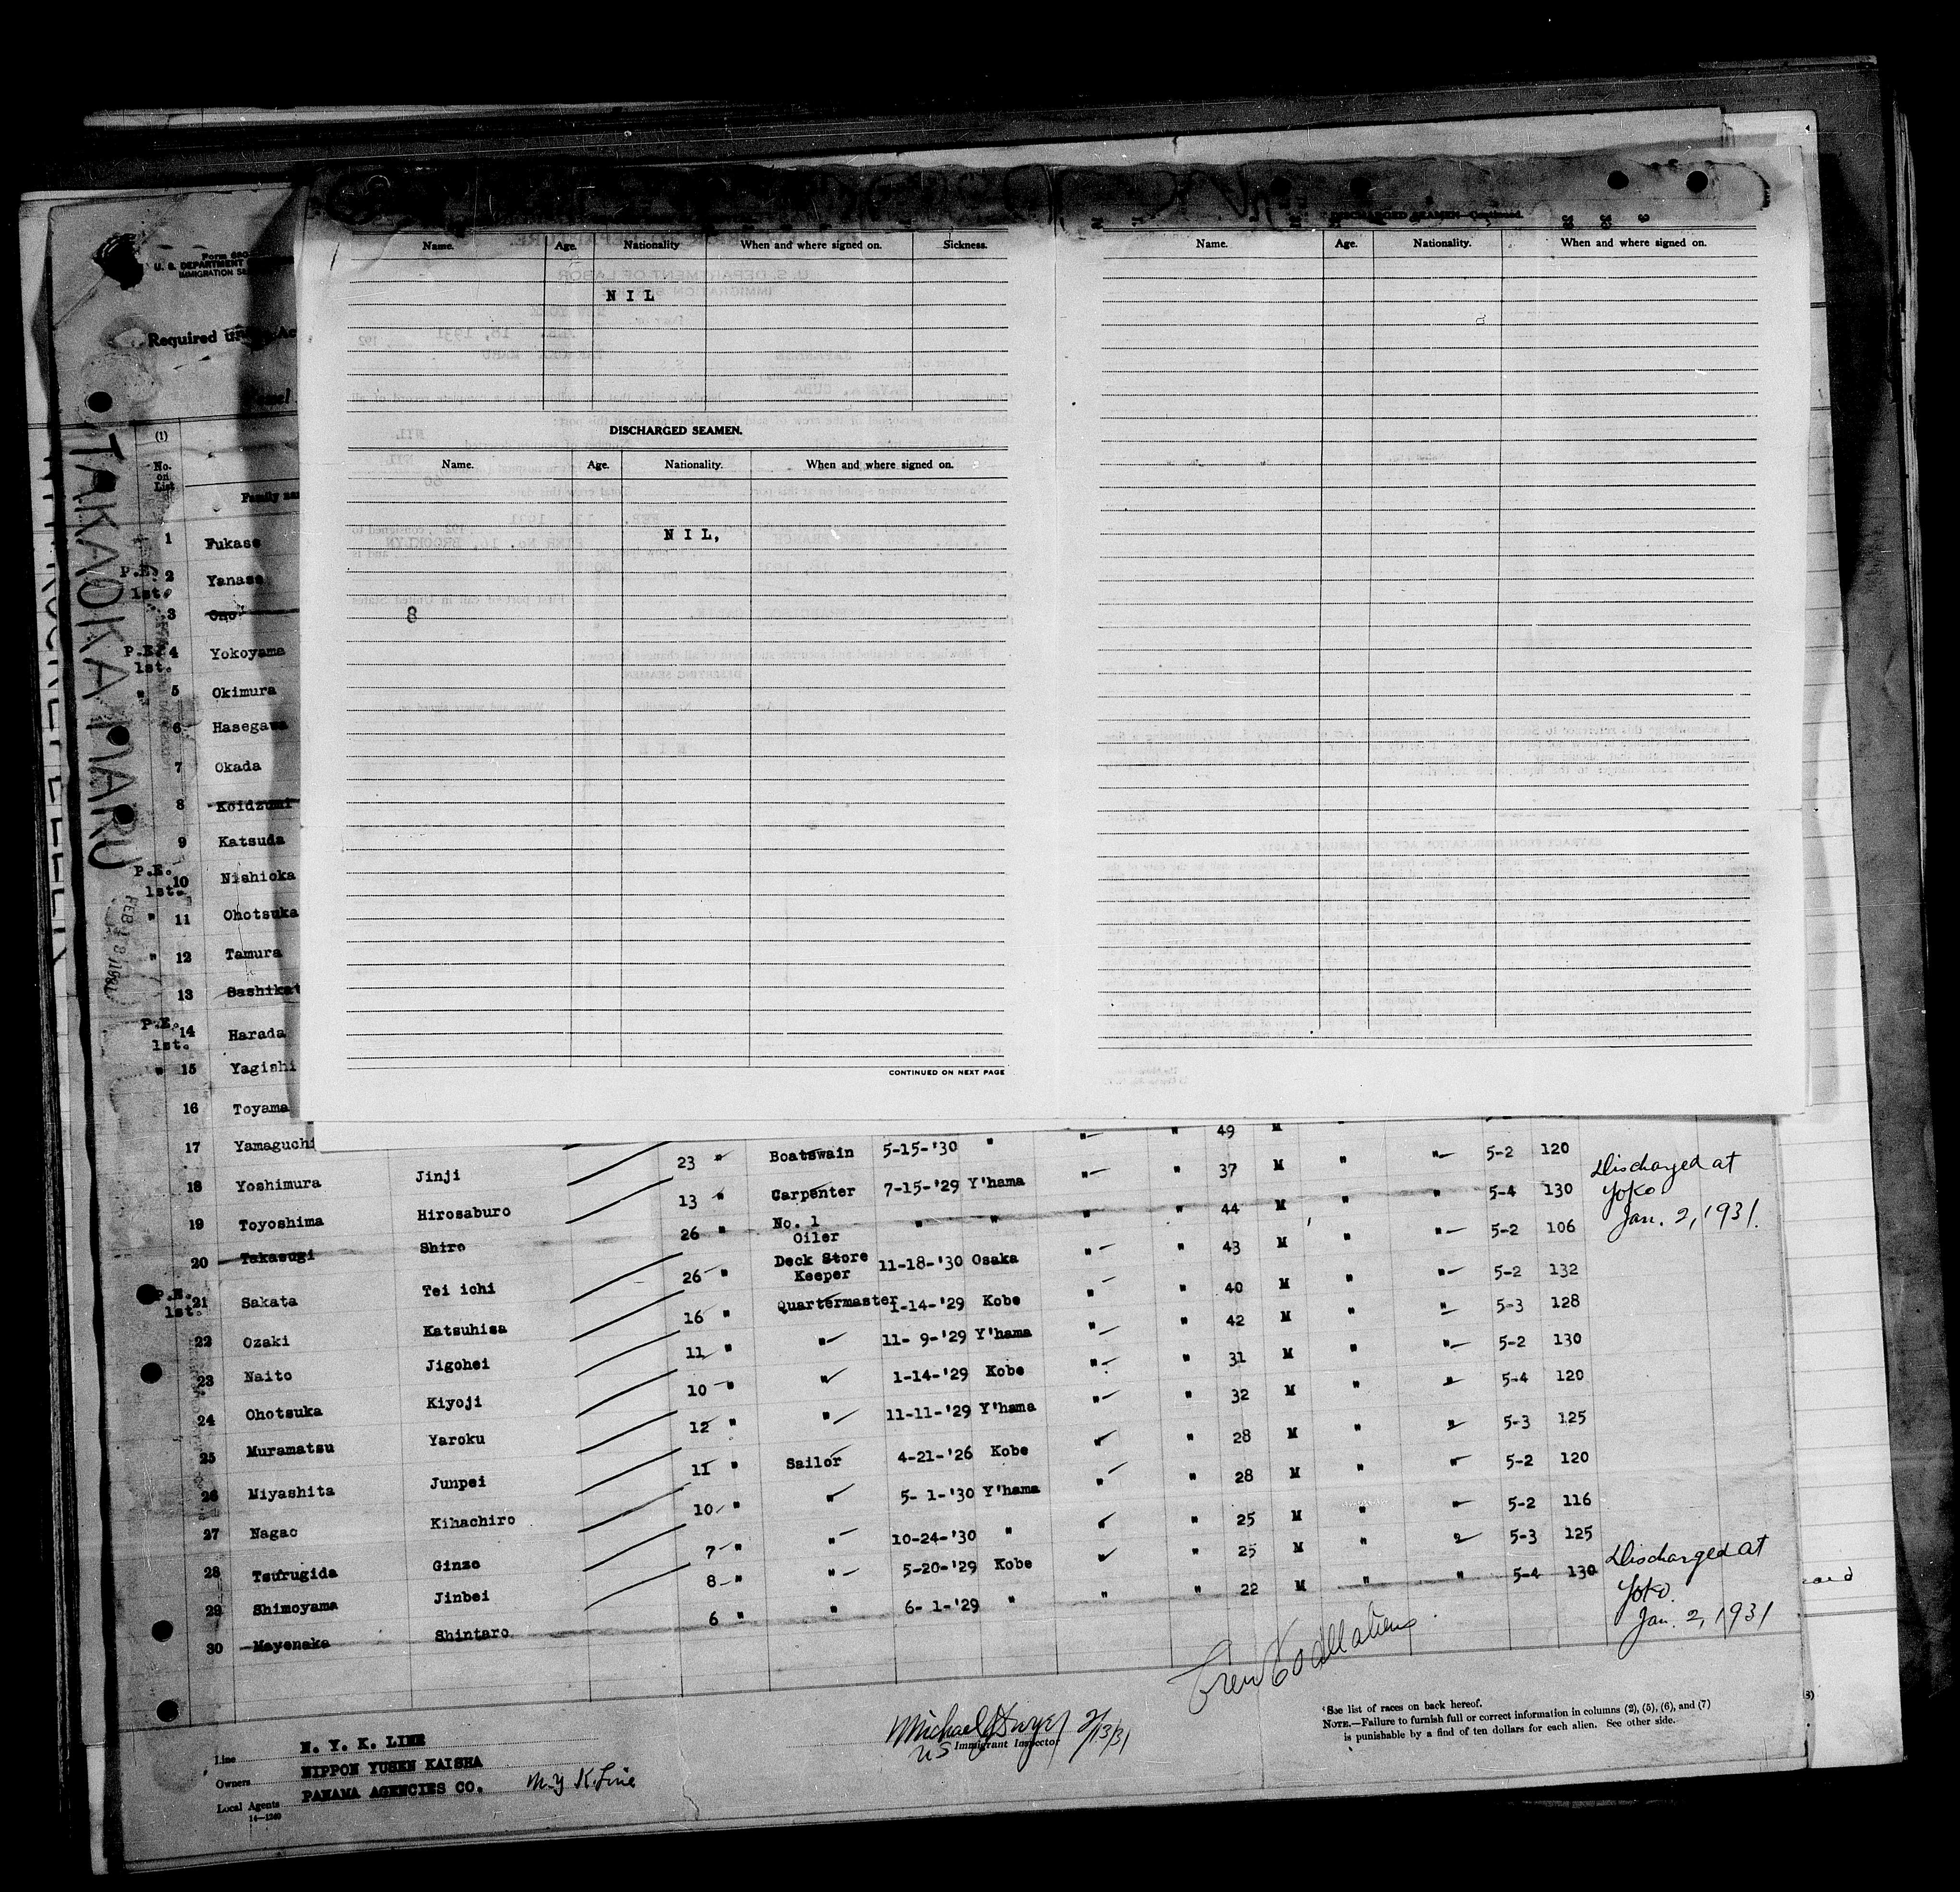 DISCHARGED SEAMEN—Continued.
Name. Age. Nationality When and where signed on. Sickness.
NIL
DISCHARGED SEAMEN.
Name. Age. Nationality. When and where signed on.
NIL,
8
CONTINUED ON NEXT PAGE
Name. Age. Nationality. When and where signed on.
U. S. DEPARTMENT
Required under Ac
TAKAOKA MARU
(1)
No. on List
1 Fukase
P.E. 1st. 2 Yanase
3 Ono
P.E. 1st. 4 Yokoyama
" 5 Okimura
6 Hasegawa
7 Okada
8 Koidzumi
9 Katsuda
P.E. 1st. 10 Nishioka
" 11 Ohotsuka
" 12 Tamura
13 Sashikat
P.E. 1st. 14 Harada
" 15 Yagishi
16 Toyama
17 Yamaguchi
" " " 49 M
18 Yoshimura Jinji 23 " Boatswain 5-15-'30 " " 37 M " " 5-2 120
19 Toyoshima Hirosaburo 13 " Carpenter 7-15-'29 Y'hama " " 44 M " " 5-4 130
20 Takasugi Shiro 26 " No. 1 Oiler " " " 43 M " " 5-2 106
Discharged at
Yoko
Jan. 2, 1931.
P.E. 1st. 21 Sakata Tei ichi 26 " Deck Store Keeper 11-18-'30 Osaka " " 40 M " " 5-2 132
22 Ozaki Katsuhisa 16 " Quartermaster 1-14-'29 Kobe " " 42 M " " 5-3 128
23 Naito Jigohei 11 " " 11- 9-'29 Y'hama " " 31 M " " 5-2 130
24 Ohotsuka Kiyoji 10 " " 1-14-'29 Kobe " " 32 M " " 5-4 120
25 Muramatsu Yaroku 12 " " 11-11-'29 Y'hama " " 28 M " " 5-3 125
26 Miyashita Junpei 11 " Sailor 4-21-'26 Kobe " " 28 M " " 5-2 120
27 Nagao Kihachiro 10 " " 5- 1-'30 Y'hama " " 25 M " " 5-2 116
28 Tsurugida Ginzo 7 " " 10-24-'30 " " " 25 M " " 5-3 125
29 Shimoyama Jinbei 8 " " 5-20-'29 Kobe " " 22 M " " 5-4 130
30 Mayenaka Shintaro 6 " " 6- 1-'29 " "
Discharged at
Yoko.
Jan. 2, 1931
Crew 60 all aliens
Michael Dwyer 2/13/31
US Immigrant Inspector
¹See list of races on back hereof.
NOTE.—Failure to furnish full or correct information in columns (2), (5), (6), and (7)
is punishable by a find of ten dollars for each alien. See other side.
Line N. Y. K. LINE
Owners NIPPON YUSEN KAISHA
Local Agents PANAMA AGENCIES CO. N.Y K. Line
14—1240